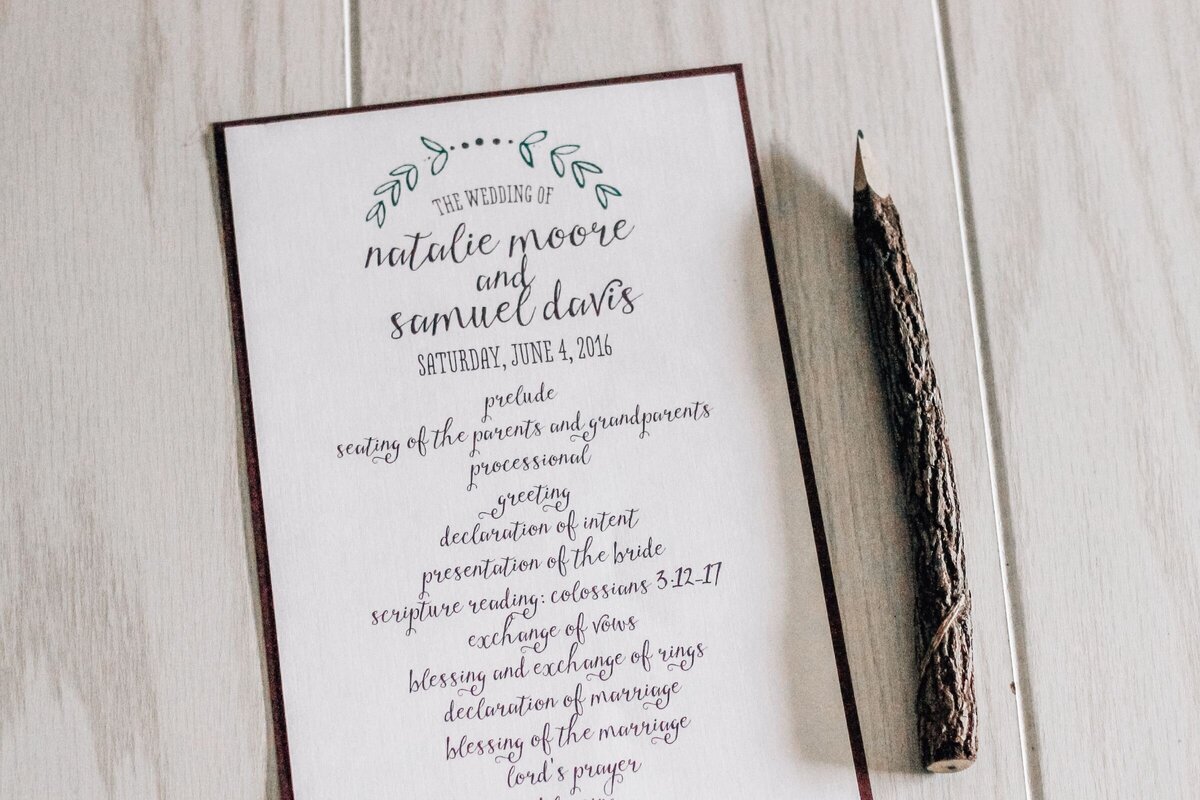 THE WEDDING OF
natalie moore
and
samuel davis
SATURDAY, JUNE 4, 2016
prelude
seating of the parents and grandparents
processional
greeting
declaration of intent
presentation of the bride
scripture reading: colossians 3:12-17
exchange of vows
blessing and exchange of rings
declaration of marriage
blessing of the marriage
lord's prayer